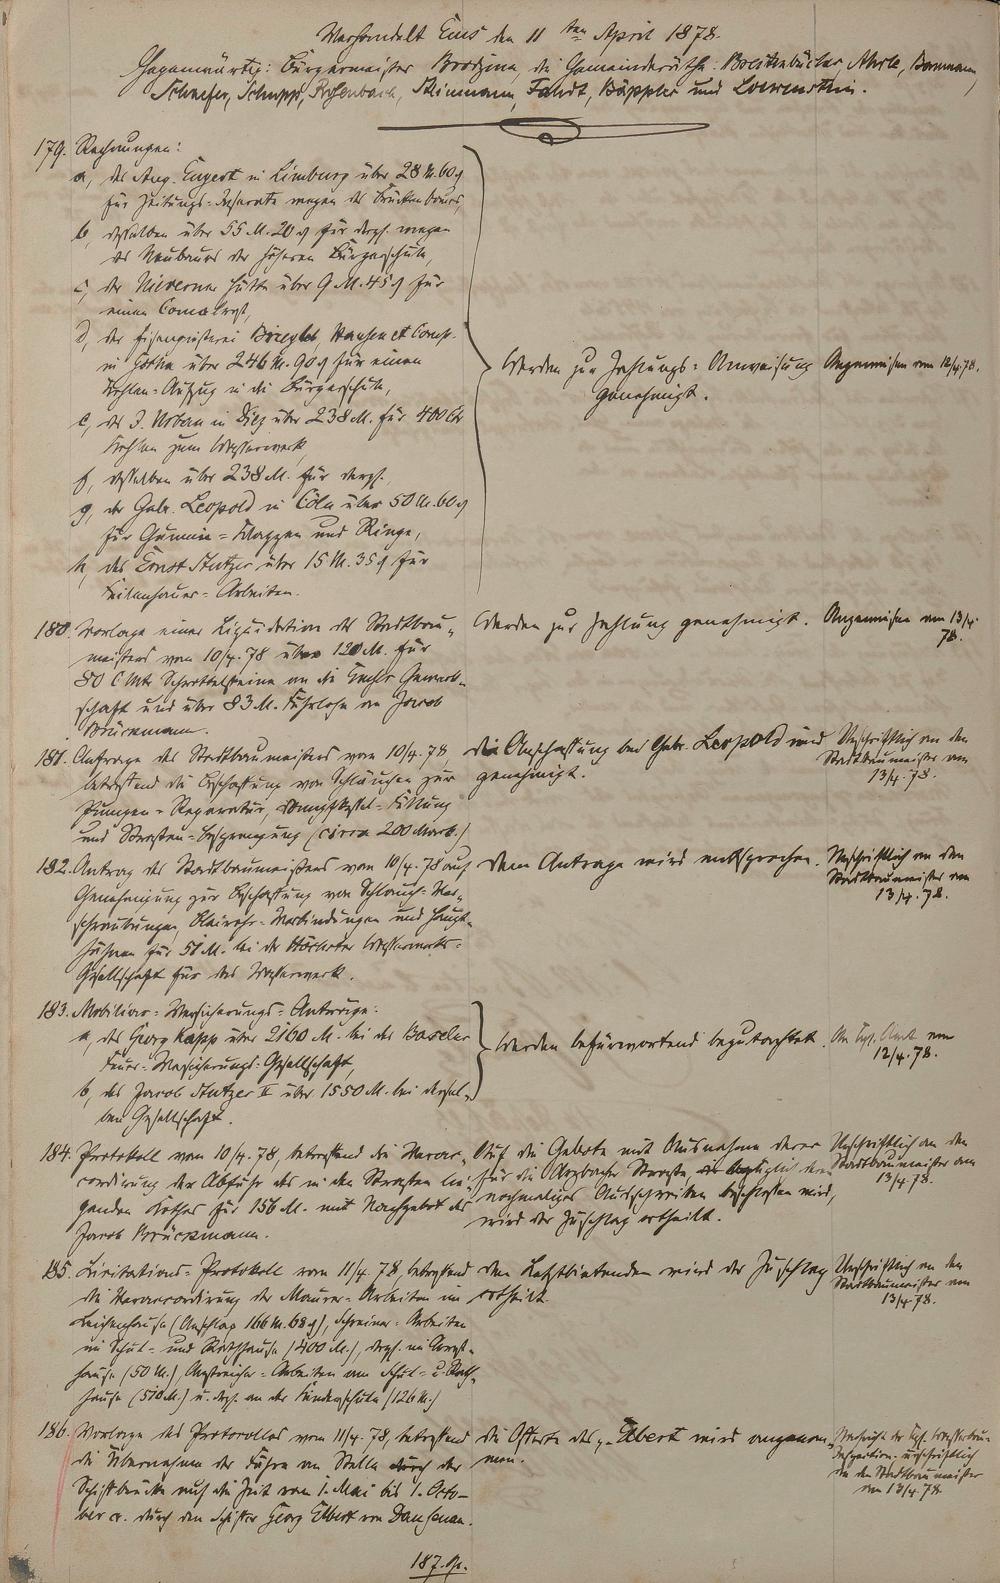 Verhandelt Ems den 11ten April 1878.
Gegenwärtig: Bürgermeister Brodzina, die Gemeinderäthe: Breitebücher Ahrle, Bermann,
Schaefer, Schupp, Rosenbach, Steinmann, Fahdt, Bäppler und Loewenstein.
179. Rechnungen:
a, des Aug. Eugert in Limburg über 28 M. 60 ₰
für Zeitungs-Inserate wegen des Brückenbaues,
b, desselben über 55 M. 20 ₰ für dergl. wegen
des Neubaues der höheren Bürgerschule,
c, der Nieverner Hütte über 9 M. 45 ₰ für
einen
d, der Eisengießerei Briegleb, Hansen et Comp.
in Gotha über 246 M. 90 ₰ für einen
Kohlen-Aufzug in die Bürgerschule,
e, des J. Urban in Diez über 238 M. für 400 Ctr
Kohlen zum Wasserwerk,
f, desselben über 238 M. für dergl.,
g, der Gebr. Leopold in Cöln über 50 M. 60 ₰
für Gummi-Klappen und Ringe,
h, des Ernst Stutzer über 15 M. 35 ₰ für
Feilenhauer-Arbeiten.
Werden zur Zahlungs-Anweisung
genehmigt.
Angewiesen am 12/4. 78.
180. Vorlage einer Liquidation des Stadtbau-
meisters vom 10/4. 78 über 120 M. für
80 C Mtr Schrottelsteine an die Emser Gewerk-
schaft und über 83 M. Fuhrlohn an Jacob
Brückmann.
Werden zur Zahlung genehmigt.
Angewiesen am 13/4.
78.
181. Anfrage des Stadtbaumeisters vom 10/4. 78,
betreffend die Beschaffung von Schläuchen zur
Pumpen-Reparatur, Dampfkessel-Füllung
und Straßen-Besprengung (circa 200 Mark.)
Die Anschaffung bei Gebr. Leopold wird
genehmigt.
Urschriftlich an den
Stadtbaumeister am
13/4. 78.
182. Antrag des Stadtbaumeisters vom 10/4. 78 auf
Genehmigung zur Beschaffung von Schlauch-Ver-
schraubungen, Bleirohr-Verbindungen und Haupt-
hähnen für 51 M. bei der Höchster Wasserwerks-
Gesellschaft für das Wasserwerk.
Dem Antrage wird entsprochen.
Urschriftlich an den
Stadtbaumeister am
13/4. 78.
183. Mobiliar-Versicherungs-Anträge:
a, des Georg Kapp über 2160 M. bei der Baseler
Feuer-Versicherungs-Gesellschaft,
b, des Jacob Stutzer II über 1550 M. bei dersel-
ben Gesellschaft.
Werden befürwortend begutachtet.
An Kgl. Amt am
12/4. 78.
184. Protokoll vom 10/4. 78, betreffend die Verac-
cordirung der Abfuhr des in den Straßen lie-
genden Kothes für 156 M. mit Nachgebot des
Jacob Brückmann.
Auf die Gebote mit Ausnahme derer
für die Arzbacher Straße, bezüglich deren
nochmaliges Ausschreiben beschlossen wird,
wird der Zuschlag ertheilt.
Urschriftlich an den
Stadtbaumeister am
13/4. 78.
185. Licitations-Protokoll vom 11/4. 78, betreffend
die Veraccordirung der Maurer-Arbeiten im
Leichenhause (Anschlag 166 M. 68 ₰), Schreiner-Arbeiten
im Schul- und Rathhause (400 M.), dergl. im Arrest-
hause (50 M.), Anstreicher-Arbeiten am Schul- u. Rath-
hause (510 M.) u. dergl. an der Kinderschule (126 M.)
Den Letztbietenden wird der Zuschlag
ertheilt.
Urschriftlich an den
Stadtbaumeister am
13/4. 78.
186. Vorlage des Protocolles vom 11/4. 78, betreffend
die Übernahme der Fähre an Stelle der
Schiffbrücke auf die Zeit vom 1. Mai bis 1. Octo-
ber cr. durch den Schiffer Georg Elbert von Dausenau.
Die Offerte des Elbert wird angenom-
men.
Nachricht der Kgl. Wasserbau-
Inspection, urschriftlich
an den Stadtbaumeister
am 13/4. 78.
187.